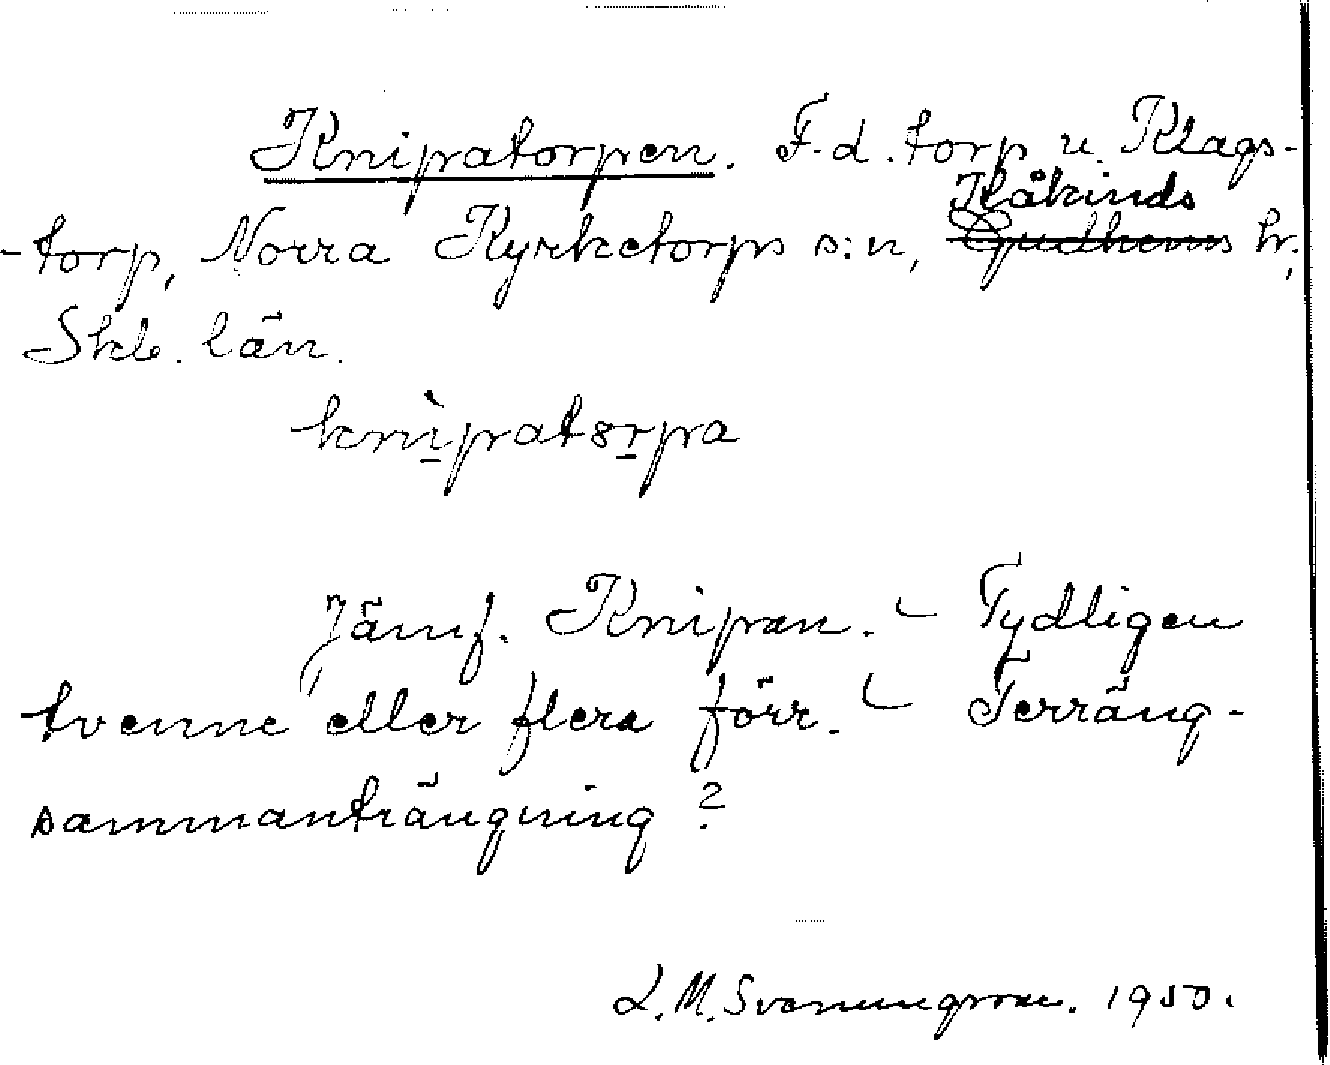 Knipatorpen. F.d. torp u. Klags-
Kåkinds
-torp, Norra Kyrketorps s:n, Gudhems hr,
Skb. län.
knìpatɷrpa
Jämf. Knipan. – Tydligen
tvenne eller flera förr. – Terräng-
sammanträngning?
L.M. Svenungsson. 1950.